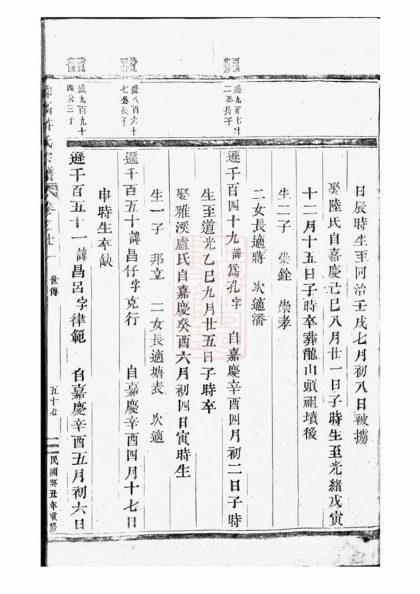 日辰時生至同治壬戌七月初八日被擄
娶陸氏自嘉慶己巳八月廿一日子時生至光緒戊寅
十二月十五日子時卒葬龍山頭祖墳後
生二子 崇銓 崇孝
二女長適蔣 次適潘
盛九百七十
二公長子
遜千百四十九諱為孔字 自嘉慶辛酉四月初二日子時
生至道光乙巳九月廿五日子時卒
娶雅溪盧氏自嘉慶癸酉六月初四日寅時生
生一子 邦立 二女長適塘表 次適
盛八百六十
七公長子
遜千百五十諱昌仔字克行 自嘉慶辛酉四月十七日
申時生卒缺
盛九百九十
四公三子
遜千百五十一諱昌呂字律範 自嘉慶辛酉五月初六日
許氏宗譜
世傳
五十七
民國癸丑年重修